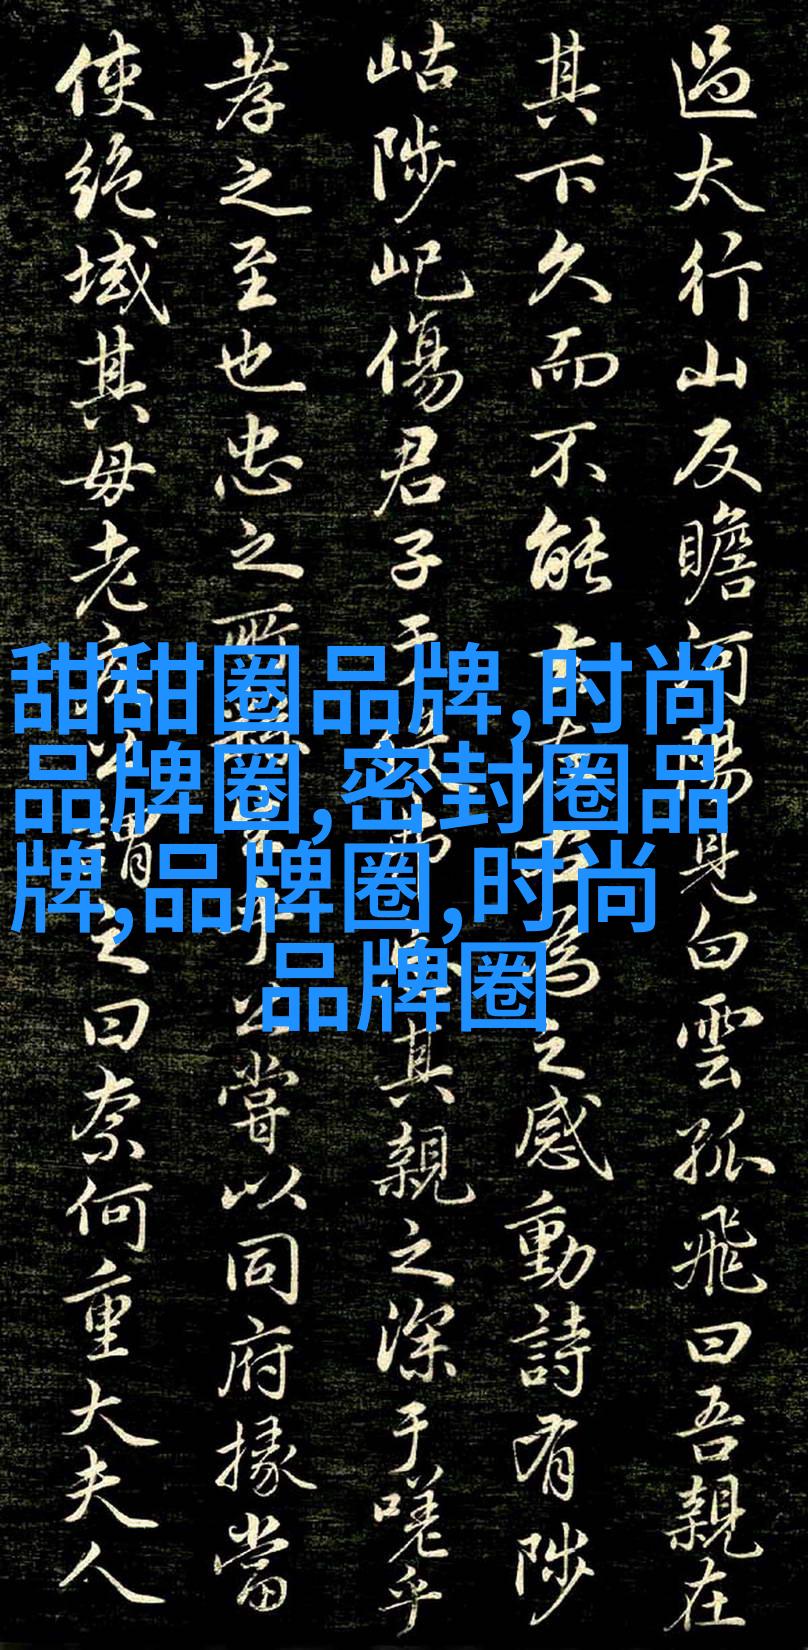 過太行山反瞻河陽見白雲孤飛曰吾親在
其下久而不能左右為之感動詩有陟
岵陟屺傷君子于其親之深于嗟乎
孝之至也忠之所乎公嘗以同府掾當
使絶域其母老謂之曰奈何重大夫人
甜甜圈品牌,时尚
品牌圈,密封圈品
牌,品牌圈,时尚
品牌圈